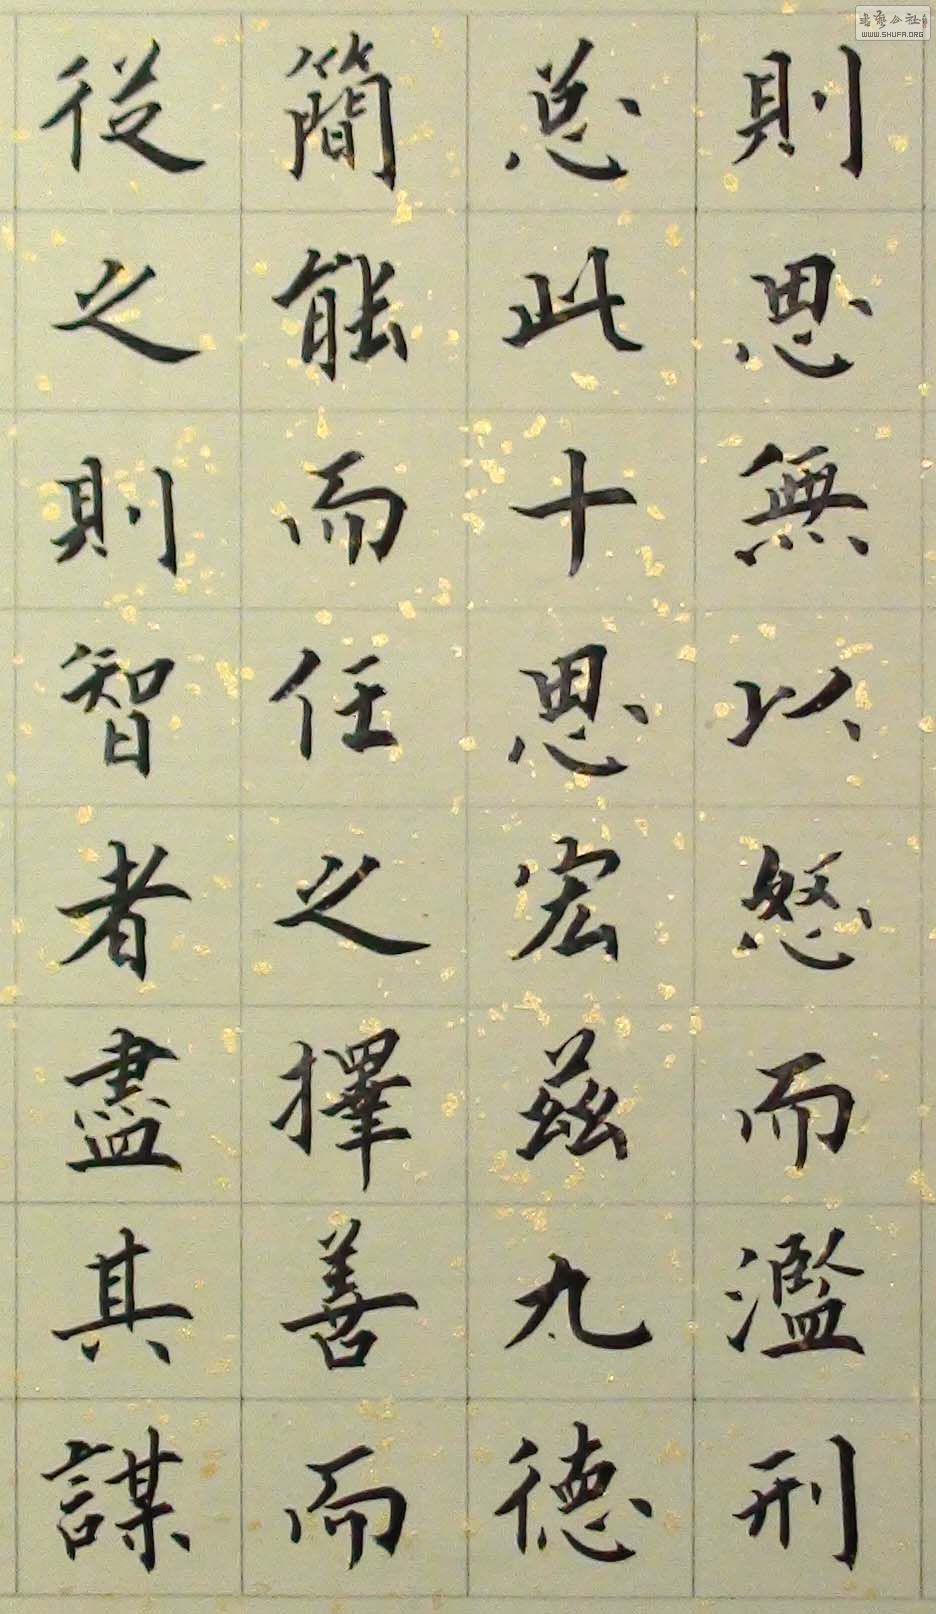 則思無以怒而濫刑
总此十思宏茲九德
簡能而任之擇善而
從之則智者盡其謀
書藝公社
WWW.SHUFA.ORG